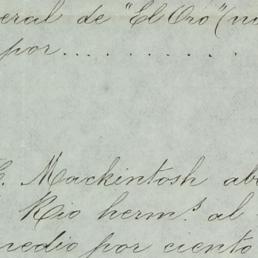 eral de "El Oro" (n
por . . . . . . . . . .
C. Mackintosh ab
Rio herm.s al
medio por ciento